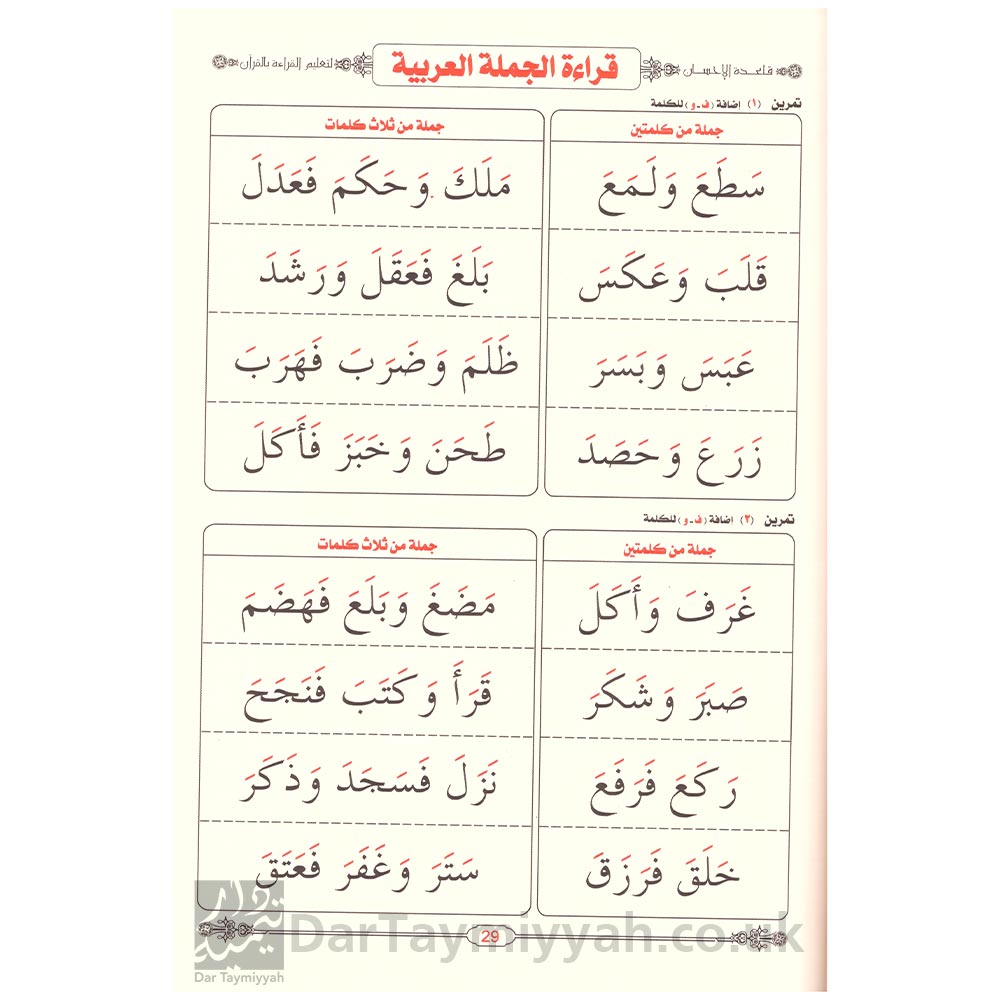 قاعدة الإحسان قراءة الجملة العربية لتعليم القراءة بالقرآن
تمرين (١) إضافة (ف-و) للكلمة
جملة من كلمتين
سَطَعَ وَلَمَعَ
قَلَبَ وَعَكَسَ
عَبَسَ وَبَسَرَ
زَرَعَ وَحَصَدَ
جملة من ثلاث كلمات
مَلَكَ وَحَكَمَ فَعَدَلَ
بَلَغَ فَعَقَلَ وَرَشَدَ
ظَلَمَ وَضَرَبَ فَهَرَبَ
طَحَنَ وَخَبَزَ فَأَكَلَ
تمرين (٢) إضافة (ف-و) للكلمة
جملة من كلمتين
غَرَفَ وَأَكَلَ
صَبَرَ وَشَكَرَ
رَكَعَ فَرَفَعَ
خَلَقَ فَرَزَقَ
جملة من ثلاث كلمات
مَضَغَ وَبَلَعَ فَهَضَمَ
قَرَأَ وَكَتَبَ فَنَجَحَ
نَزَلَ فَسَجَدَ وَذَكَرَ
سَتَرَ وَغَفَرَ فَعَتَقَ
29
Dar Taymiyyah
DarTaymiyyah.co.uk